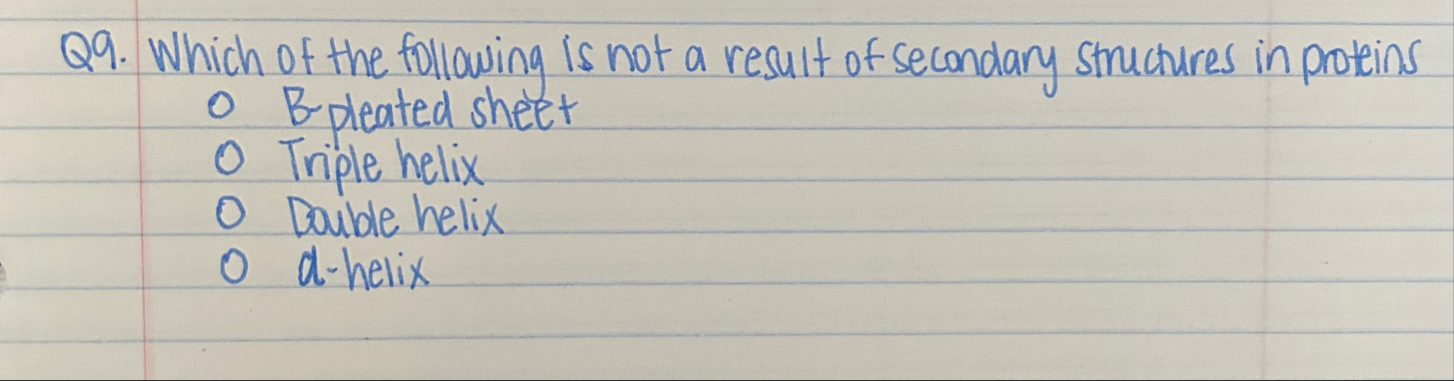 Q9. Which of the following is not a result of secondary structures in proteins
O B-pleated sheet
O Triple helix
O Double helix
O α-helix